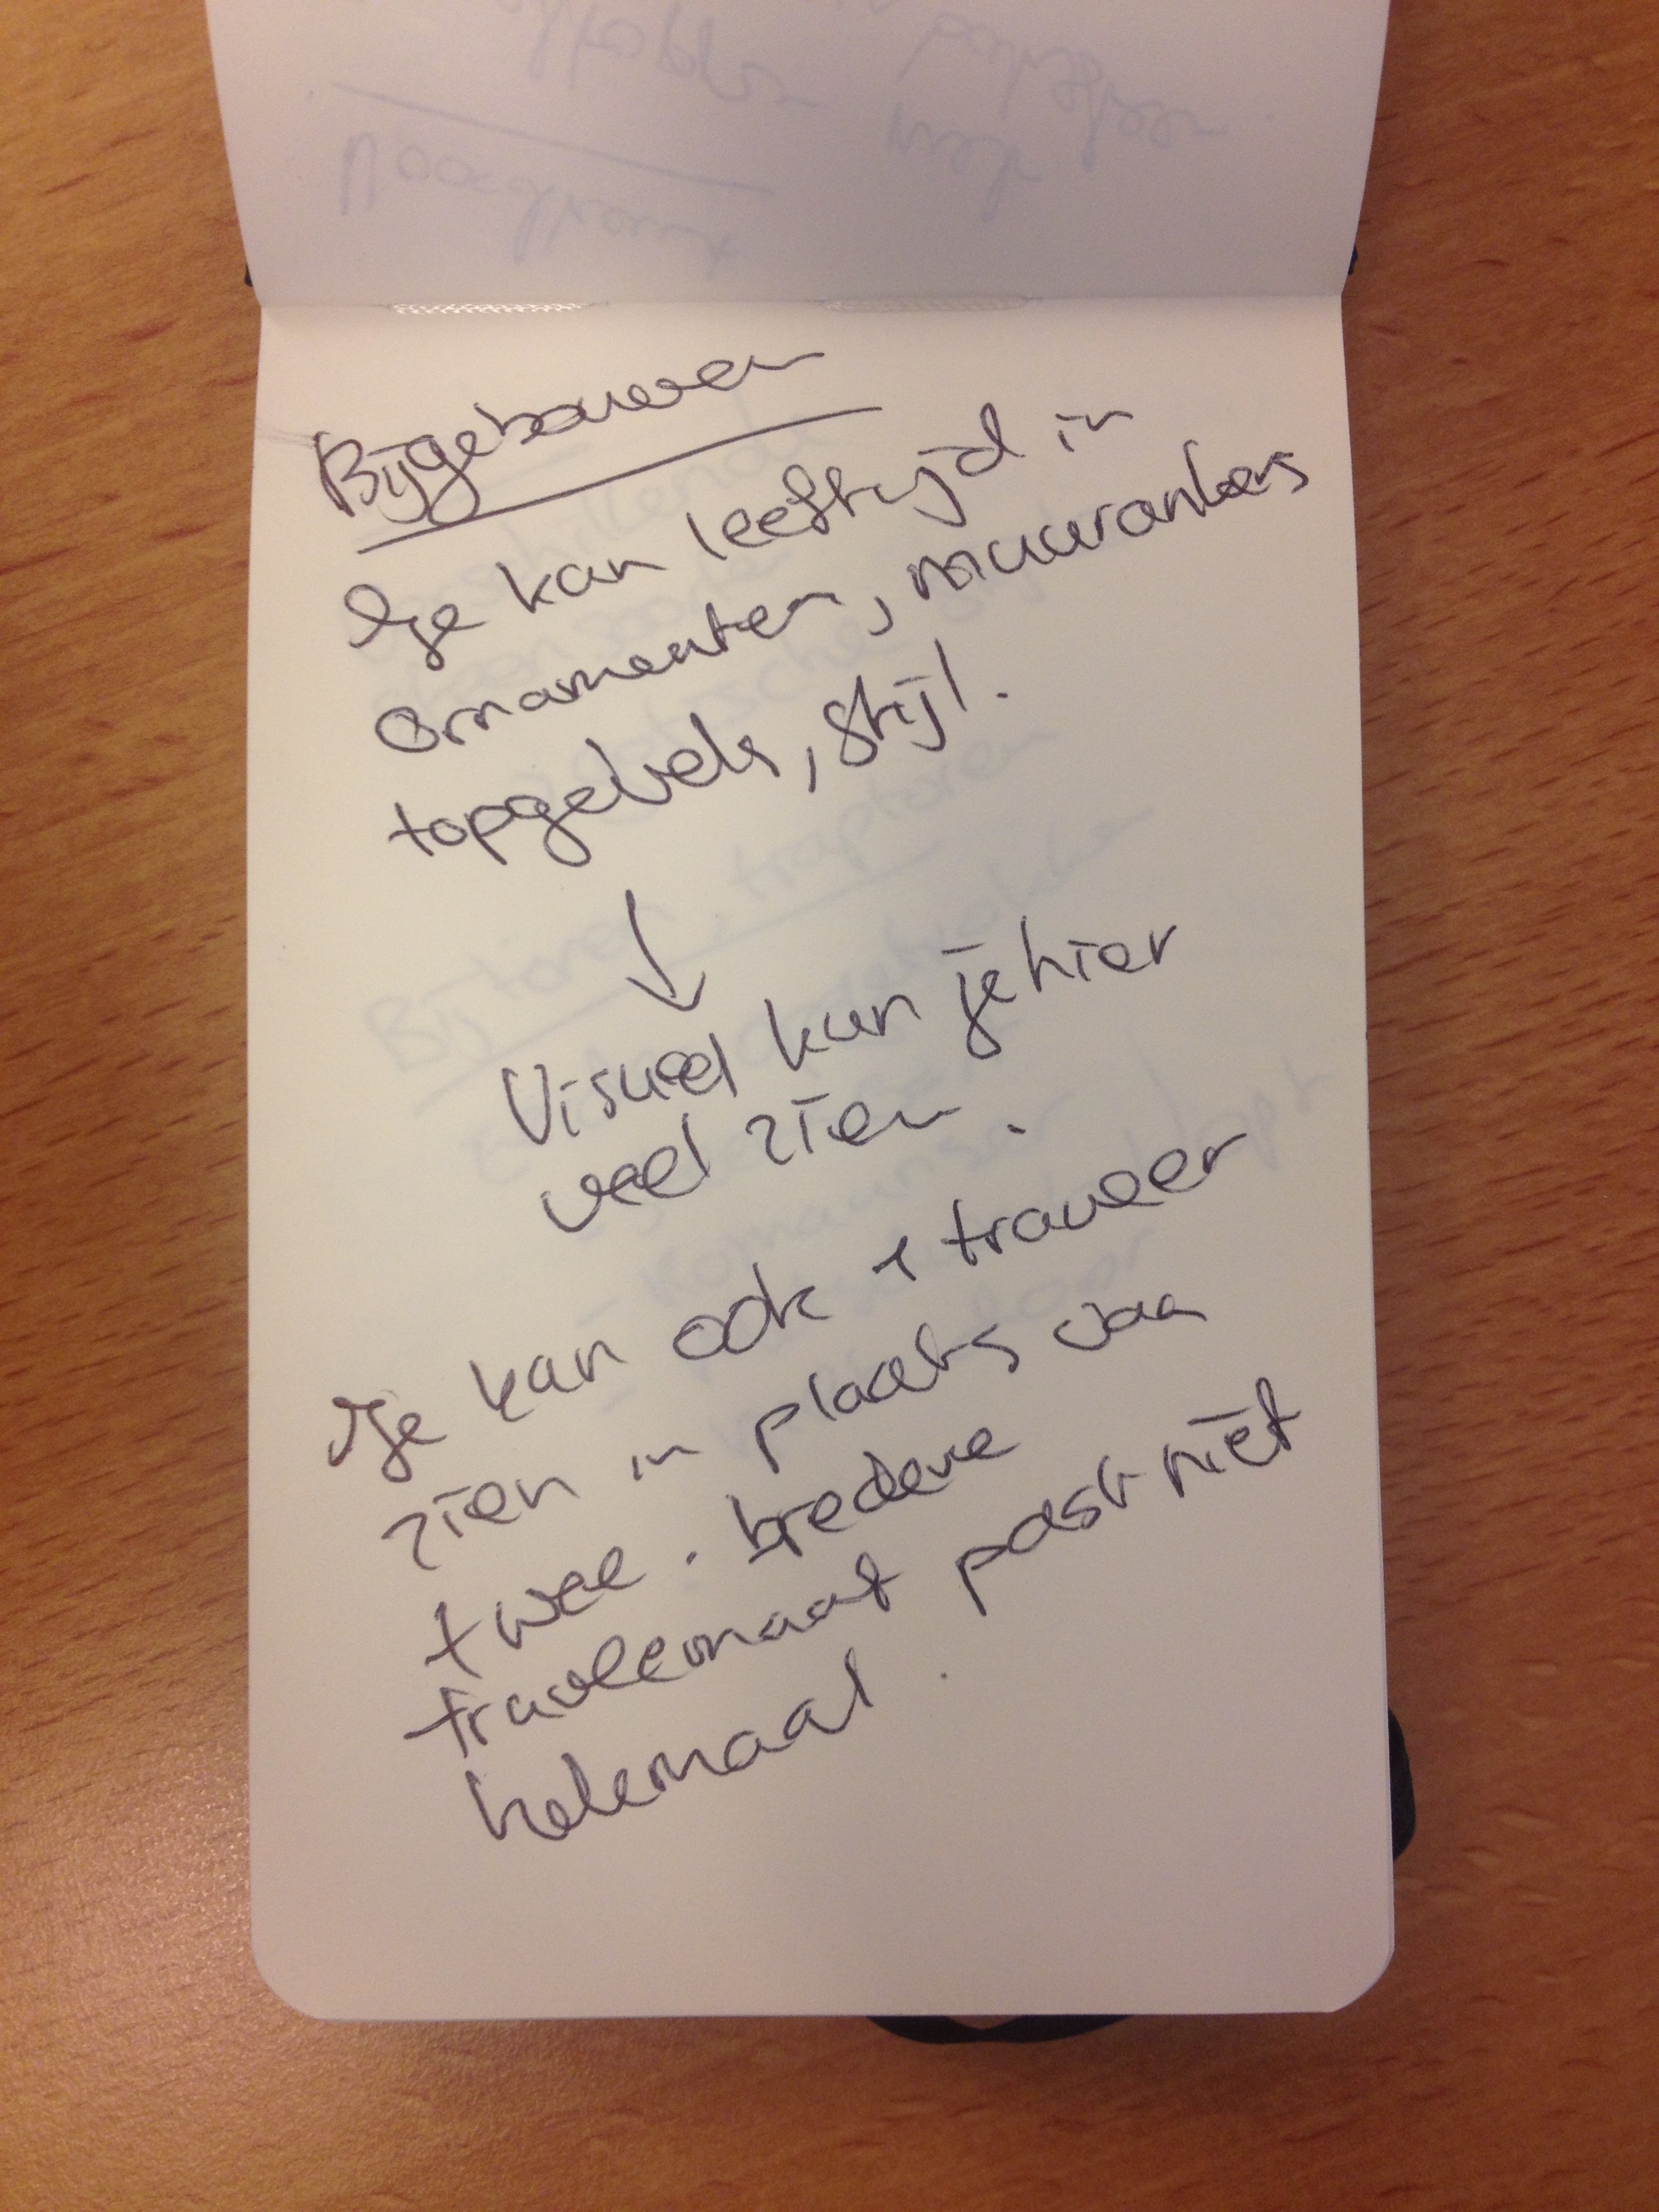 Bijgebouwen
Je kan leeftijd in
ornamenten, muurankers
topgevels, stijl.
↓
Visueel kun je hier
veel zien.
Je kan ook 1 traveer
zien in plaats van
twee. bredere
traveemaat past niet
helemaal.